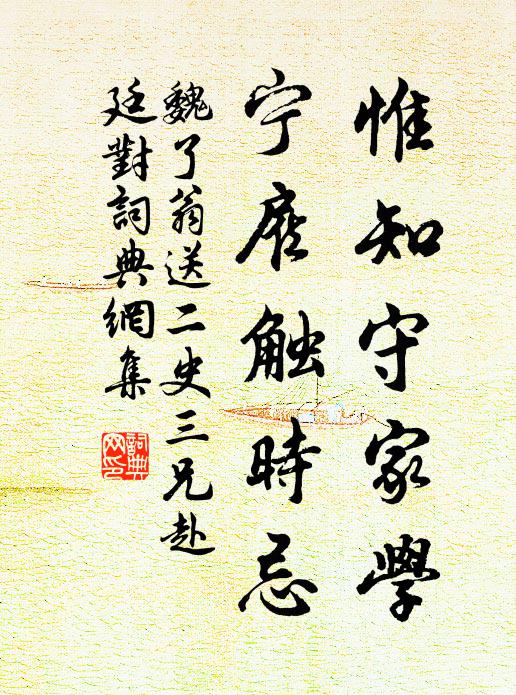 惟知守家學
宁触時忌
魏了翁送二史三兄赴
廷對詞典網集
詞典
网印